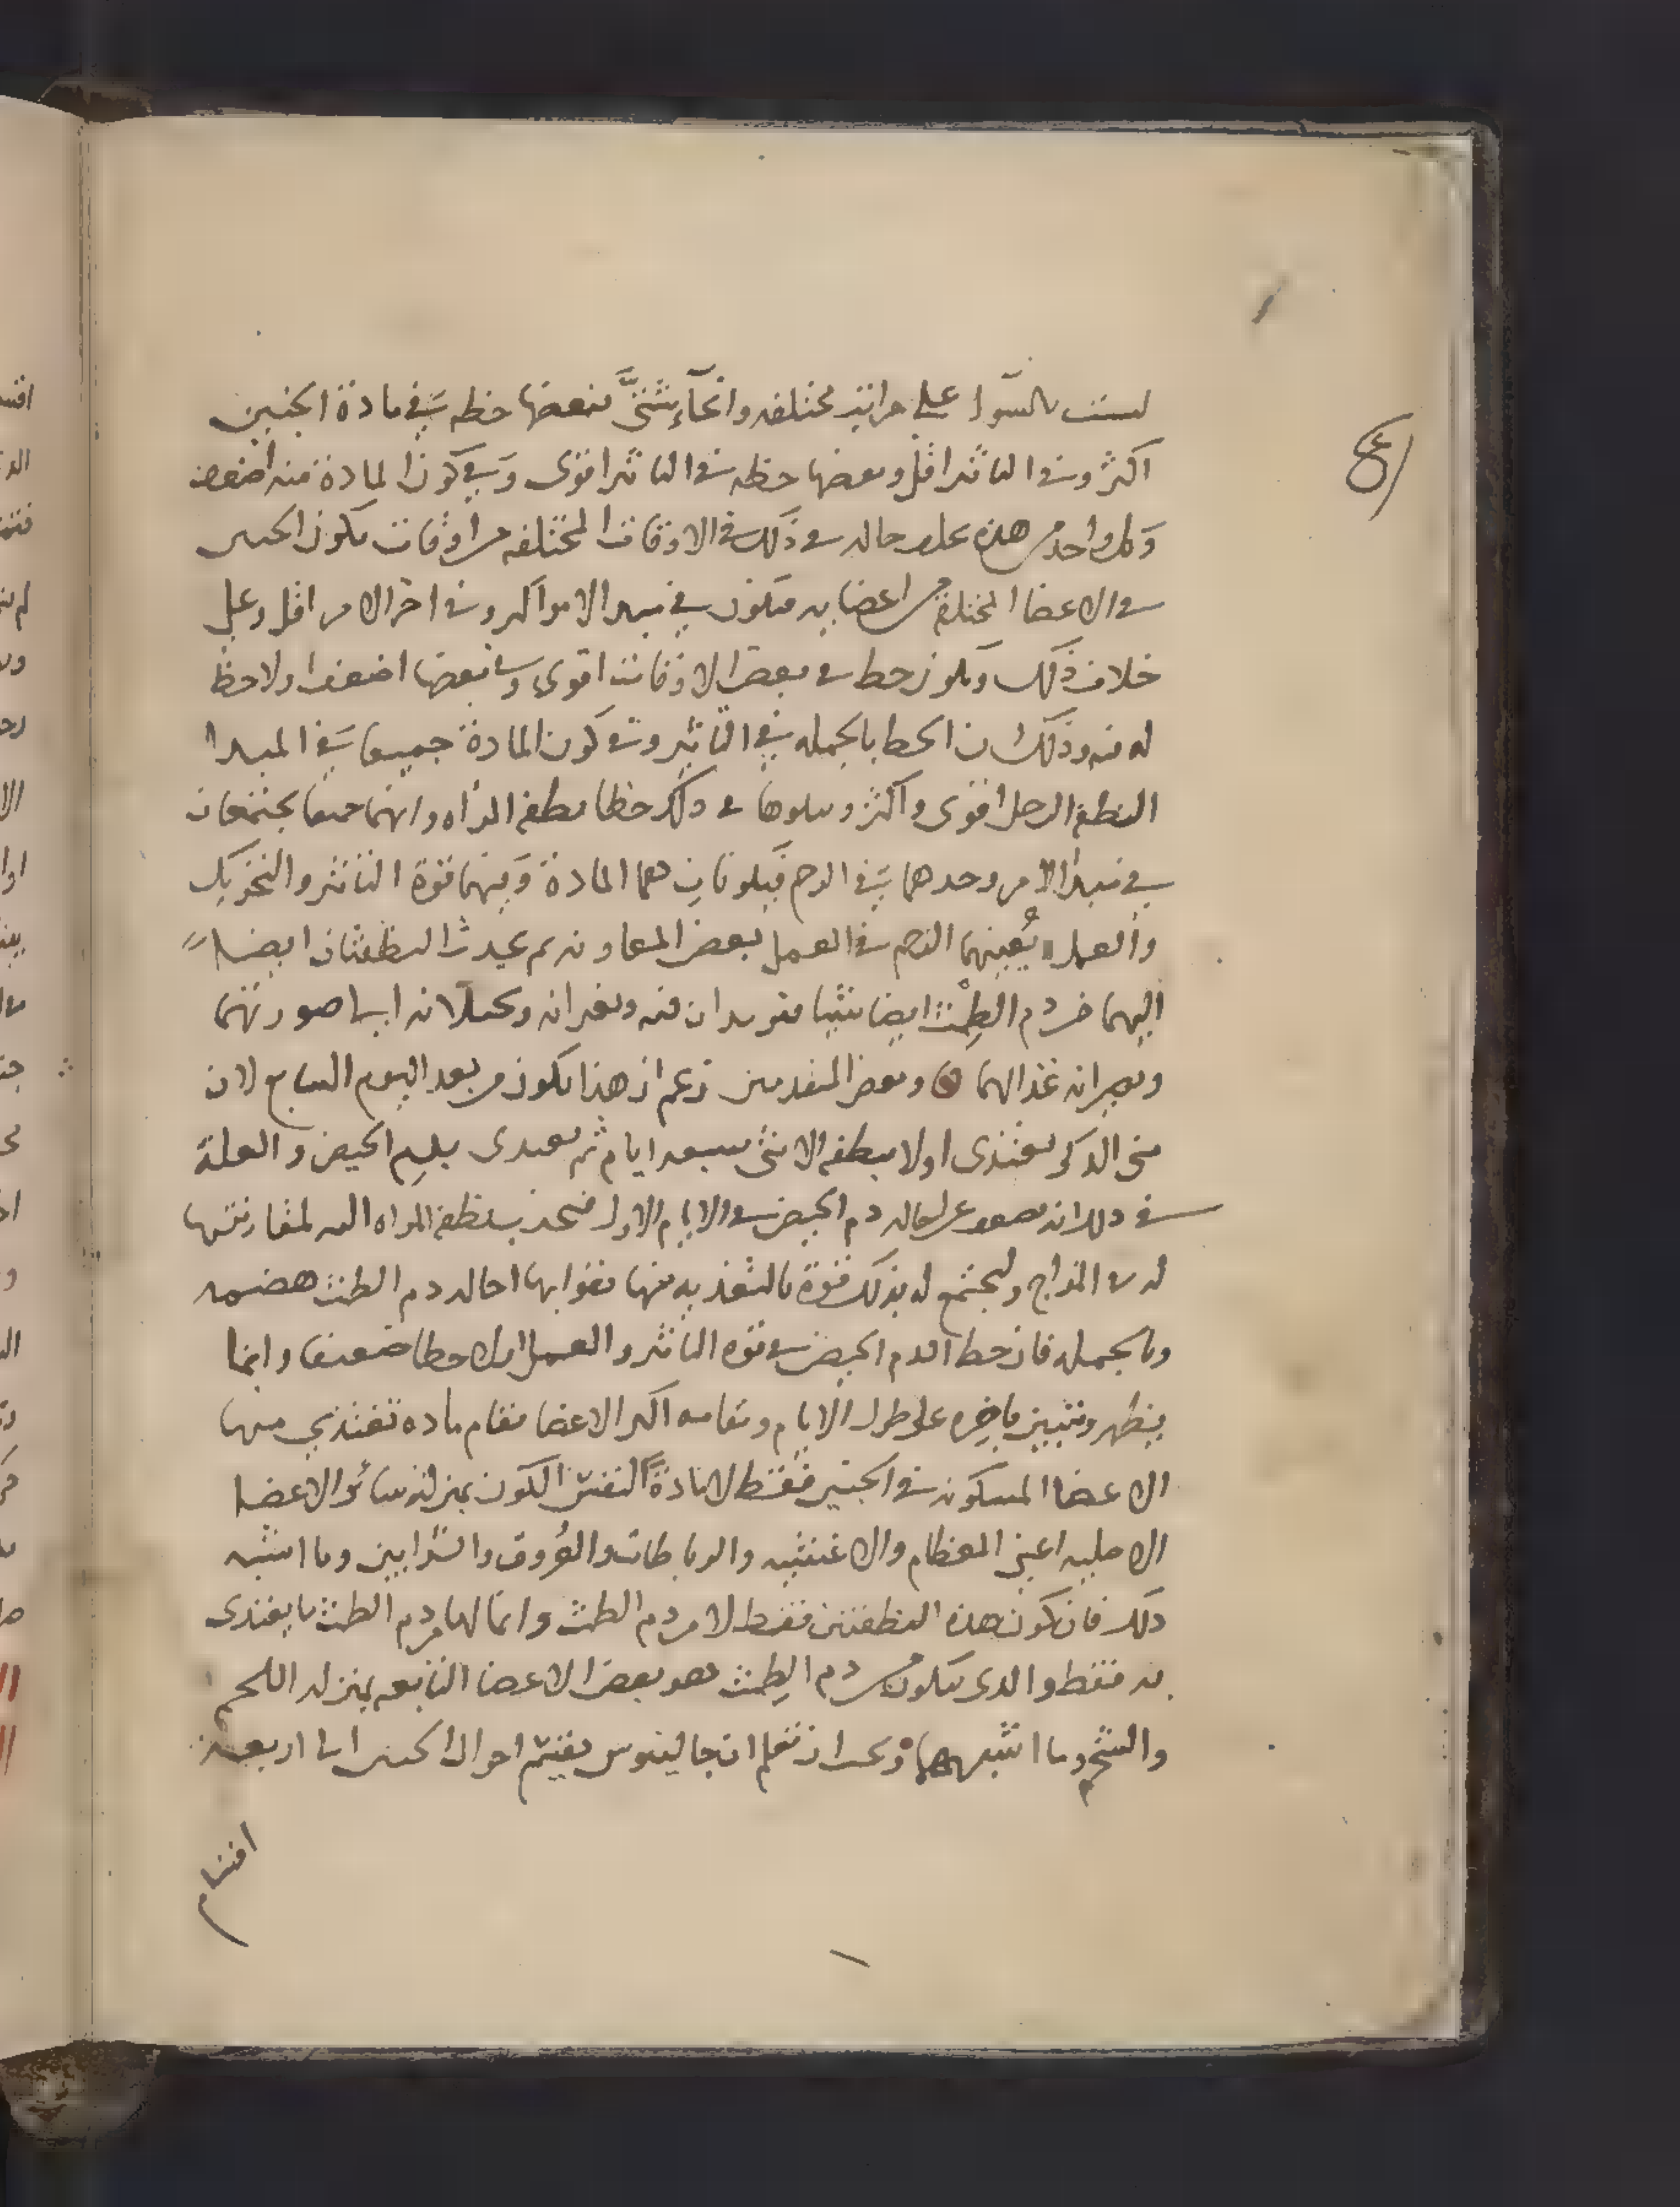 ليست بالسوآ على مراتب مختلفه وانحآء شتّى فبعضها حظه في مادة الجنين
اكثر وفى التاثير اقل وبعضها حظه فى التاثير اقوى وفي كون المادة منه اضعف
وكل واحد من هذه حاله فى ذلك فى الاوقات المختلفه من اوقات تكون الجنين
فى الاعضا المختلفه من اعضايه فيكون في مبدا الامر اكثر وفى اخر الامر اقل وعلى
خلاف ذلك ويكون حظ فى بعض الاوقات اقوى وفى بعضها اضعف اولا حظ
له فيه وذلك ان الحظ بالجمله في التاثير وفى كون المادة جميعا في المبدا
النطفه الرجل اقوى واكثر ويتلوها فى ذلك حظا نطفه المراه وانهما جميعا يجتمعان
في مبدا الامر وحدهما في الرحم فيكونان هما المادة وفيهما قوة التاثير والتحريك
والعمل يُعينهما الرحم فى العمل بعض المعاونه ثم النطفتان ايضا
اليهما من دم الطمث ايضا شيا منه ويغيرانه ويحيلانه الى صورتهما
ويصيرانه غذا لهما وبعض المتقدمين زعم ان هذا يكون من بعد اليوم السابع لان
منى الذكر يغتذى اولا بنطفه الانثى سبعه ايام ثم يغتدى بدم الحيض والعلة
فى ذلك انه دم الحيض فى الايام الاول فيجذب نطفه المراه اليه لمقاربتها
له فى المزاج وليجتمع له بذلك قوة بالتغذيه منها يقوا بها احاله دم الطمث وهضمه
وبالجمله فان حظ الدم الحيض فى قوه التاثير والعمل حظا ضعيفا وانما
يظهر ويتبين باخره على طول الايام اكثر الاعضا مقام ماده تغتذي منها
الاعضا المتكونه فى الجنين فقط لا مادةً لنفس الكون بمنزله سائر الاعضا
الاصليه اعني العظام والاغشيه والرباطات والعُروق والشرايين وما اشبه
ذلك فان كون هذه النطفتين فقط لا من دم الطمث وانما لها من دم الطمث ما يغتذى
به فقط والذى يتكون من دم الطِمث هو بعض الاعضا التابعه بمنزله اللحم
والشحم وما اشبههما ويجب ان تعلم ان جالينوس يقسم احوال الجنين الى اربعة
اقسام